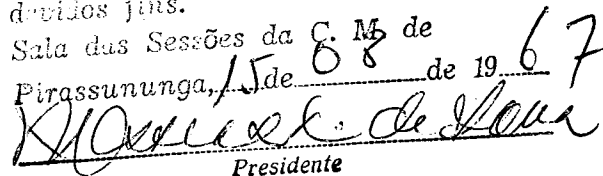 devidos fins.
Sala das Sessões da C. M. de
Pirassununga, 15 de 08 de 1967
Presidente